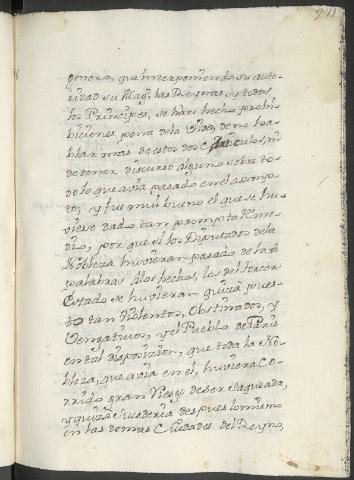 241
genera, que interponiendo su auto-
ridad su Mag.d, las Reynas, y todos
los Principes, se han hecho prohi-
biciones pena de la Vida, de no ha-
blar mas de estos dos Articulos, ni
de tener discurso alguno sobre to-
do lo que avia pasado en el assump-
to, y fue mui bueno el que se hu-
viese dado tan prompto Reme-
dio, por que si los Diputados de la
Nobleza huvieran pasado de las
palabras alos hechos, los del tercer
Estado se huvieran quizá pues-
to tan Violentos, Obstinados, y
Vengativos, y el Pueblo de Paris
en tal disposizion, que toda la No-
bleza, que avia en el, huviera Co-
rrido gran Riesgo de ser Saqueada,
y quizá Sucederia despues lo mismo
en las demas Ciudades del Reyno,